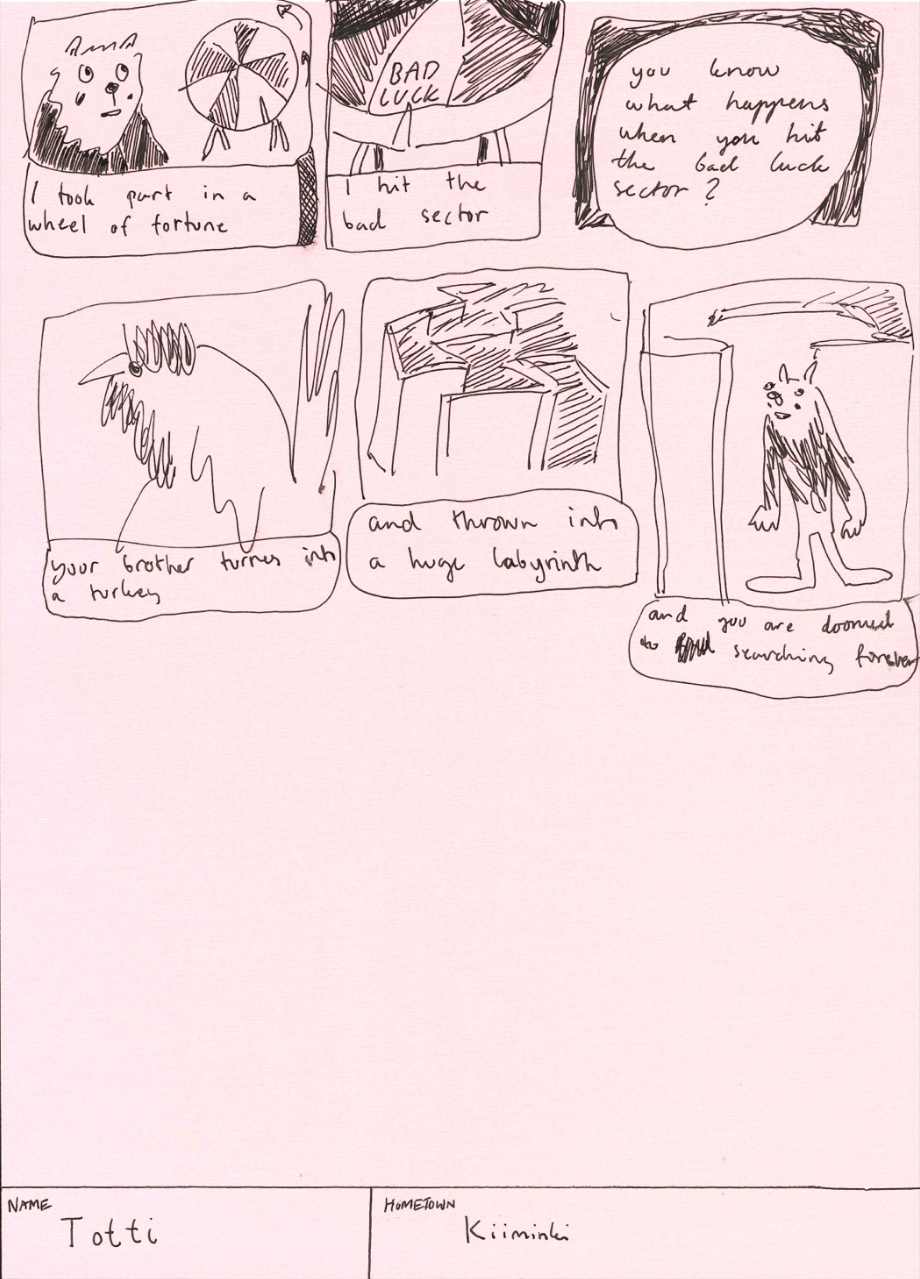 I took part in a
wheel of fortune
BAD
LUCK
I hit the
bad sector
you know
what happens
when you hit
the bad luck
sector?
your brother turnes into
a turkey
and thrown into
a huge labyrinth
and you are doomed
to searching forever
NAME
Totti
HOMETOWN
Kiiminki